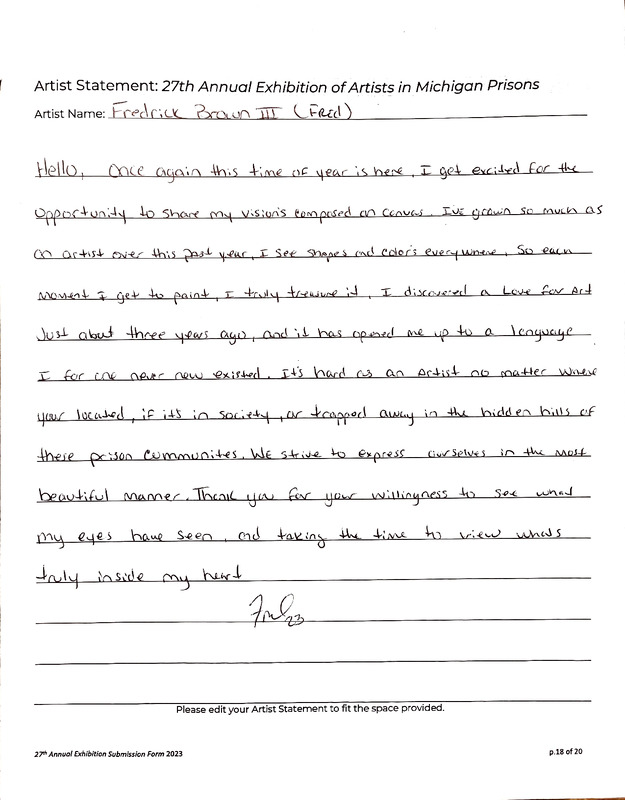 Artist Statement: 27th Annual Exhibition of Artists in Michigan Prisons
Artist Name: Fredrick Brown III (Fred)
Hello, Once again this time of year is here, I get excited for the
opportunity to share my visions composed on canvas. I've grown so much as
an artist over this past year, I see shapes and colors everywhere, So each
moment I get to paint, I truly treasure it, I discovered a Love for Art
Just about three years ago, and it has opened me up to a language
I for one never new existed. It's hard as an Artist no matter where
your located, if it's in society, or trapped away in the hidden hills of
these prison communities. WE strive to express ourselves in the most
beautiful manner. Thank you for your willingness to see what
my eyes have seen, and taking the time to view whats
truly inside my heart
Fred 23
Please edit your Artist Statement to fit the space provided.
27th Annual Exhibition Submission Form 2023
p.18 of 20